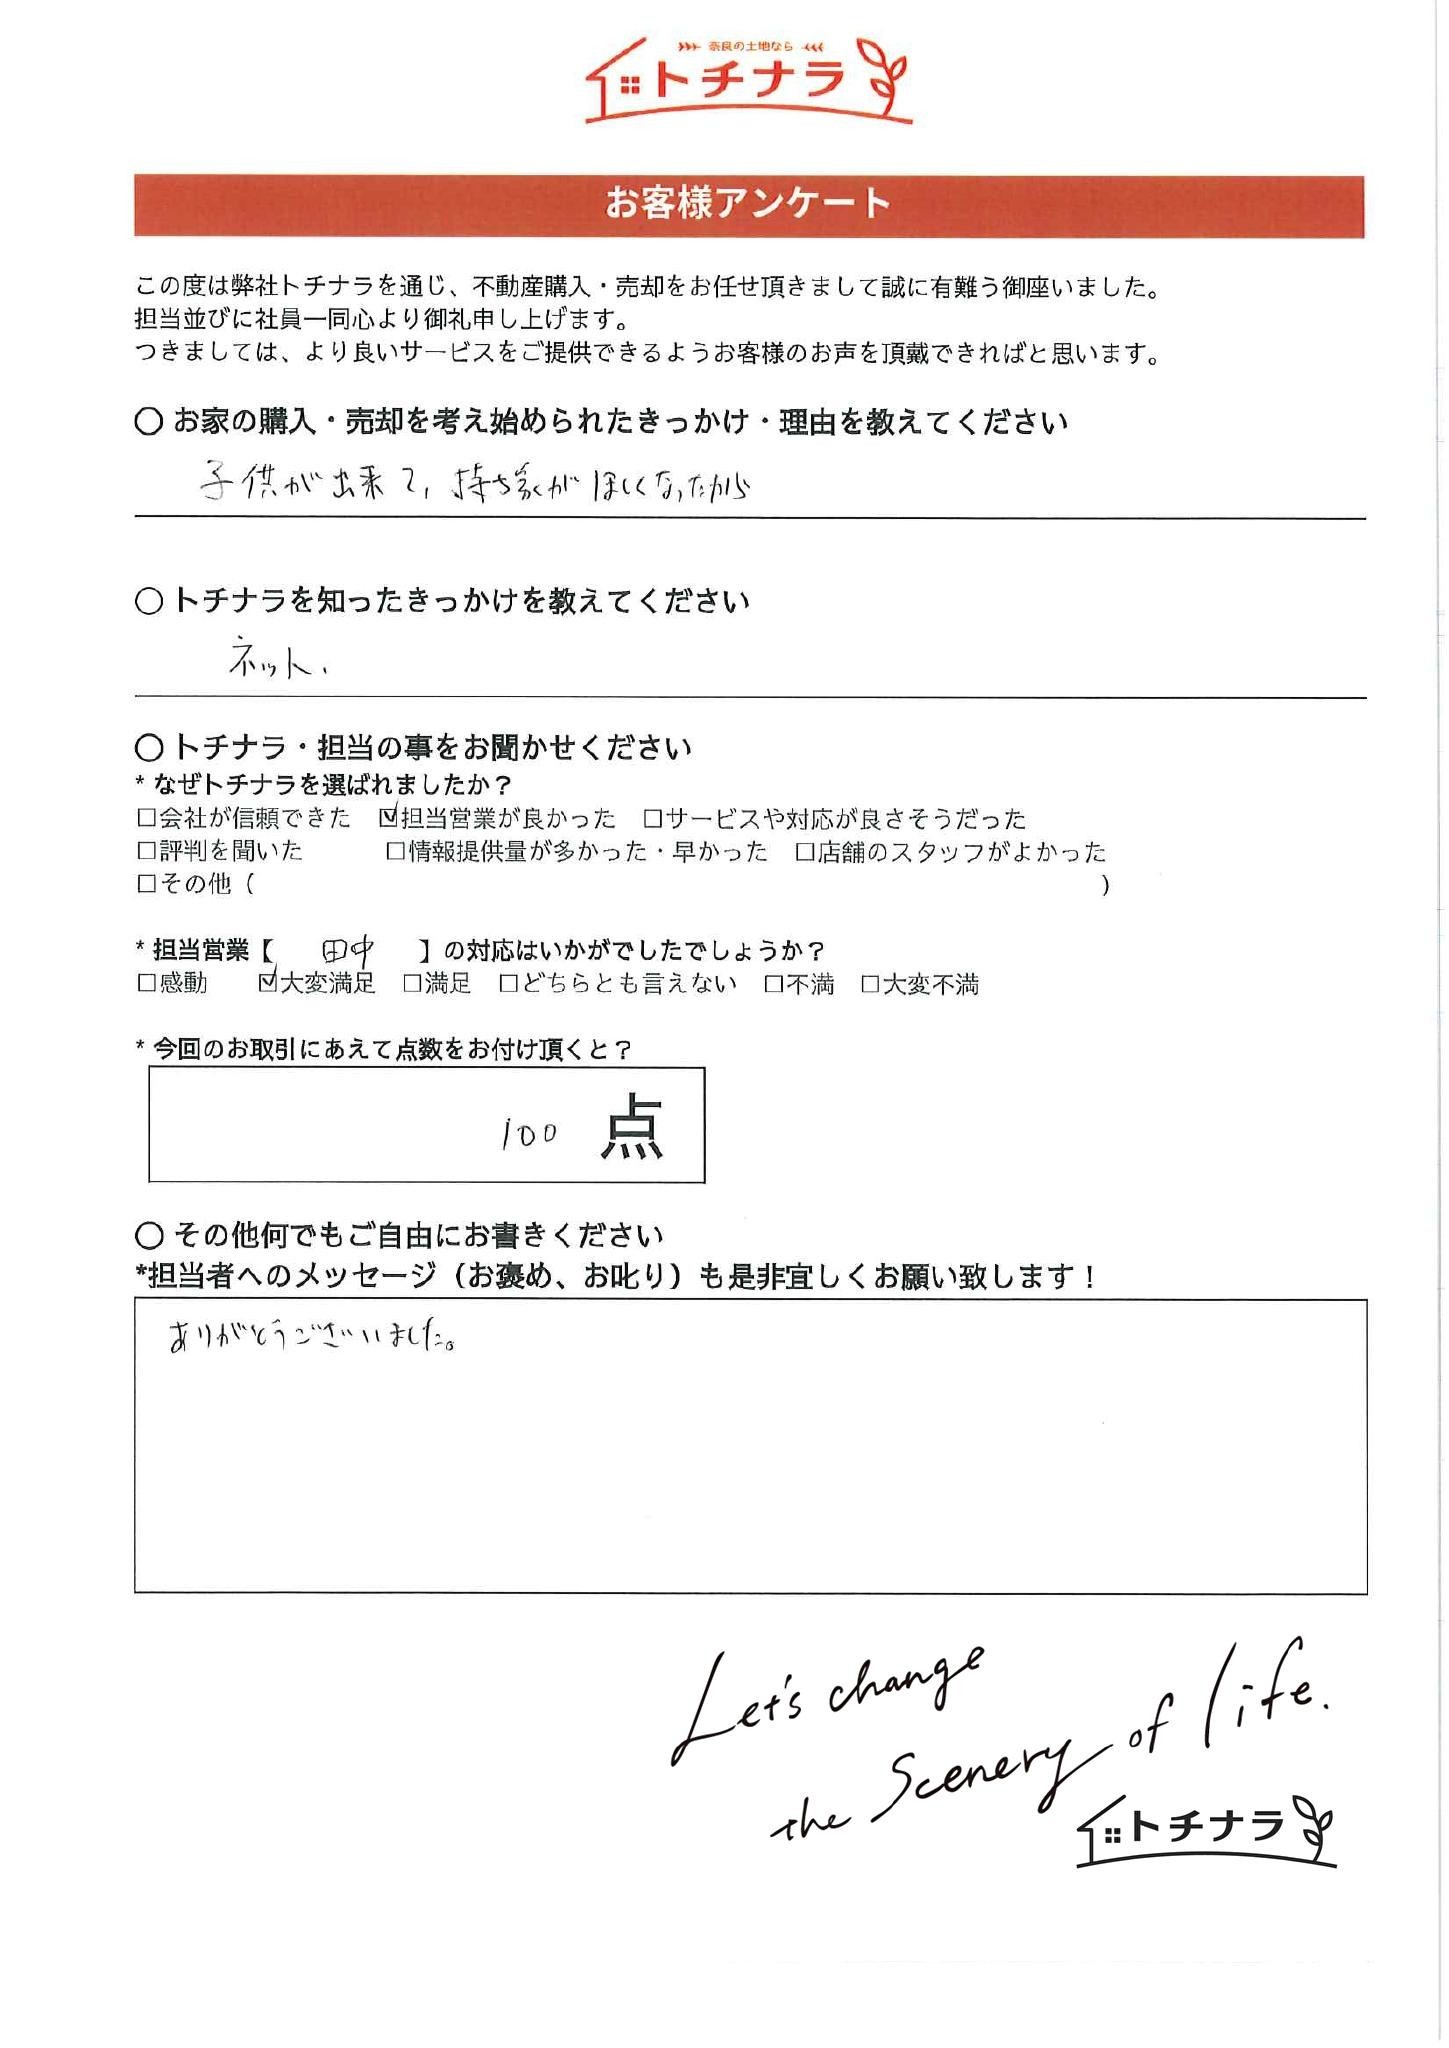 奈良の土地なら
トチナラ
お客様アンケート
この度は弊社トチナラを通じ、不動産購入・売却をお任せ頂きまして誠に有難う御座いました。
担当並びに社員一同心より御礼申し上げます。
つきましては、より良いサービスをご提供できるようお客様のお声を頂戴できればと思います。
○ お家の購入・売却を考え始められたきっかけ・理由を教えてください
子供が出来て、持ち家がほしくなったから
○ トチナラを知ったきっかけを教えてください
ネット、
○ トチナラ・担当の事をお聞かせください
* なぜトチナラを選ばれましたか？
□会社が信頼できた ☑担当営業が良かった □サービスや対応が良さそうだった
□評判を聞いた □情報提供量が多かった・早かった □店舗のスタッフがよかった
□その他（ ）
* 担当営業【 田中 】の対応はいかがでしたでしょうか？
□感動 ☑大変満足 □満足 □どちらとも言えない □不満 □大変不満
* 今回のお取引にあえて点数をお付け頂くと？
100 点
○ その他何でもご自由にお書きください
*担当者へのメッセージ（お褒め、お叱り）も是非宜しくお願い致します！
ありがとうございました。
Let's change
the Scenery of life.
トチナラ